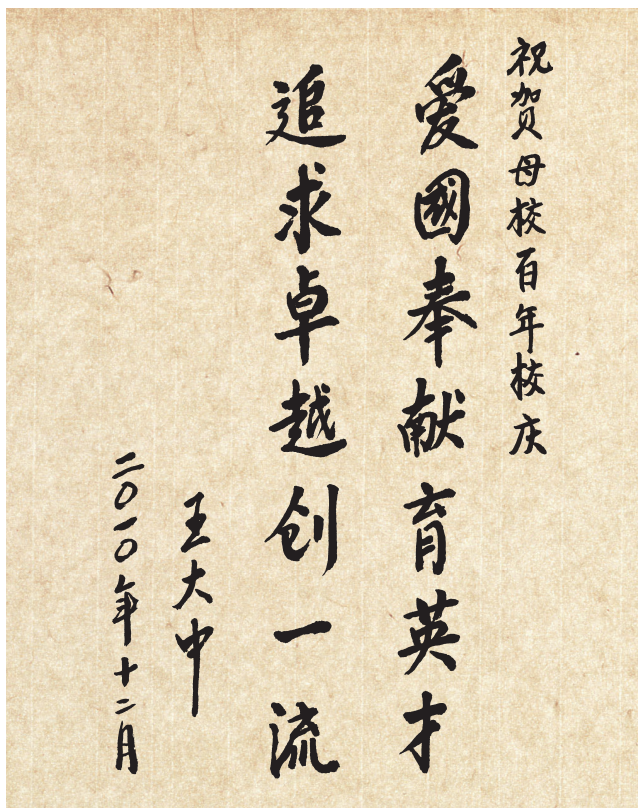 祝贺母校百年校庆
爱國奉献育英才
追求卓越创一流
王大中
二〇一〇年十二月